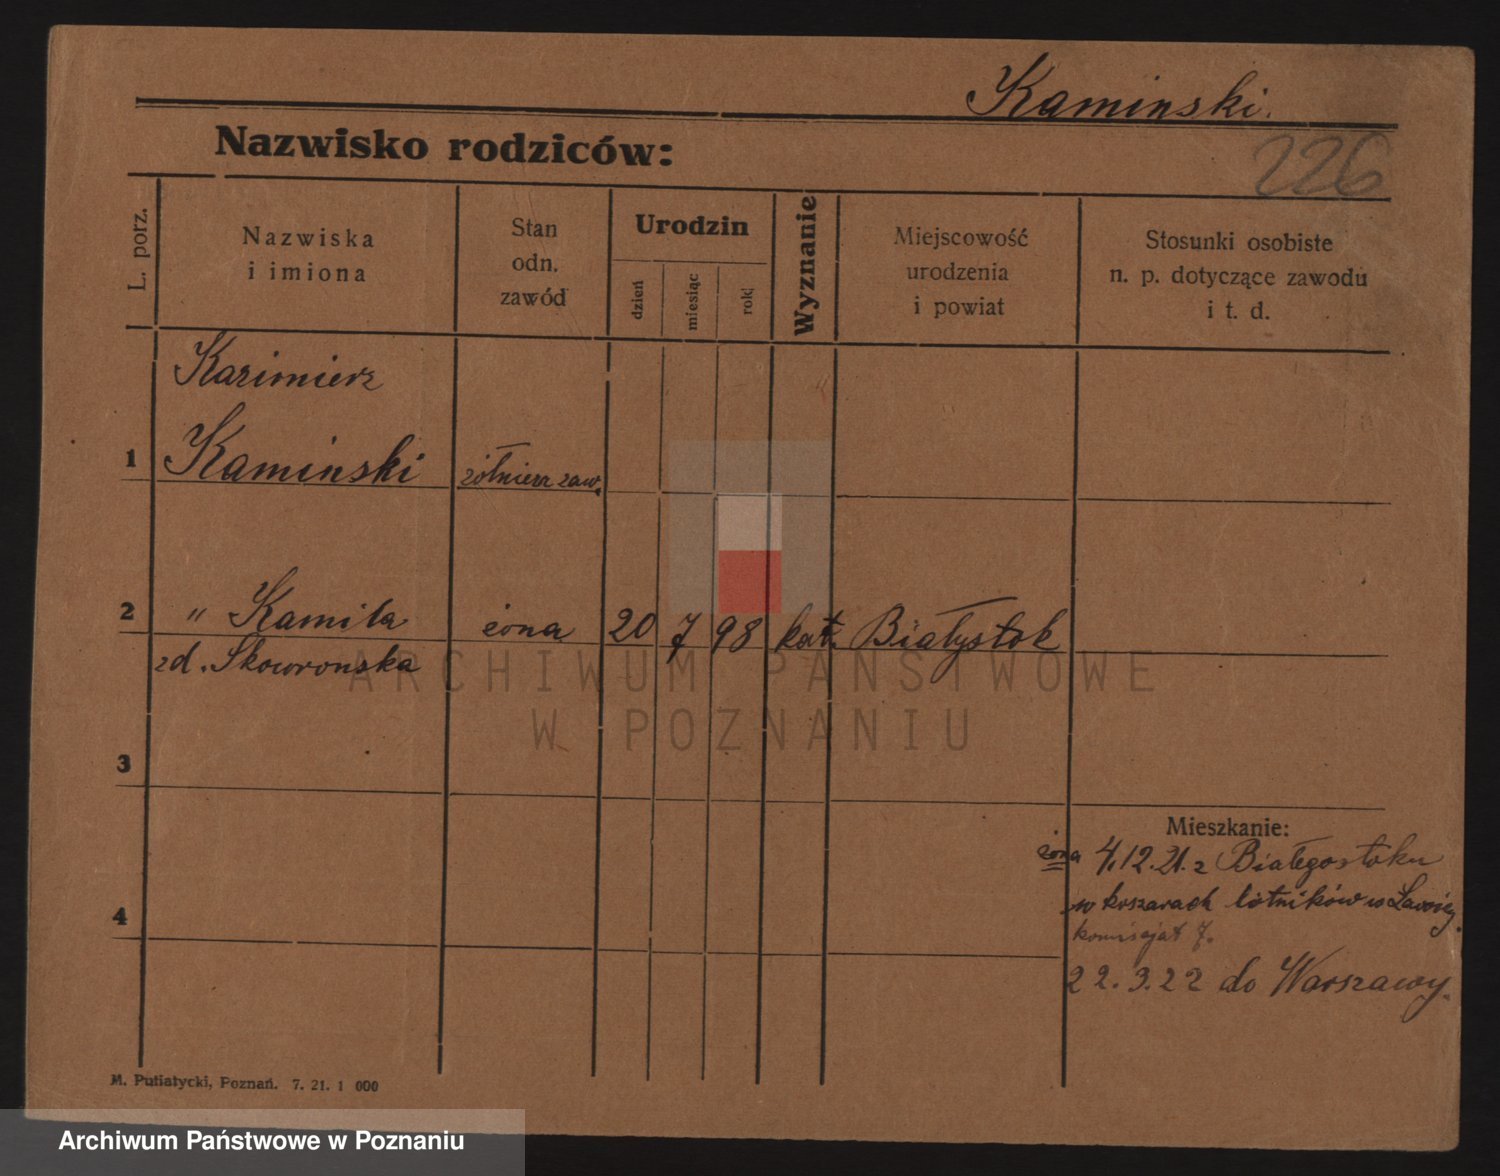 Kaminski.
Nazwisko rodziców:
226
L. porz.
Nazwiska
i imiona
Stan
odn.
zawód
Urodzin
dzień
miesiąc
rok
Wyznanie
Miejscowość
urodzenia
i powiat
Stosunki osobiste
n. p. dotyczące zawodu
i t. d.
Kazimierz
1 Kaminski żołnierz zaw.
2 " Kamila żona 20 7 98 kat. Białystok
zd. Skowronska
3
Mieszkanie:
żona 4.12.21. z Białegostoku
w koszarach lotników w Ławicy.
komisajat 7.
4
22.3.22 do Warszawy.
M. Putiatycki, Poznań. 7. 21. 1 000
ARCHIWUM PAŃSTWOWE
W POZNANIU
Archiwum Państwowe w Poznaniu